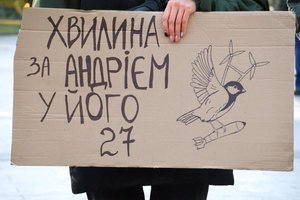 ХВИЛИНА
ЗА АНДРІЄМ
У ЙОГО
27